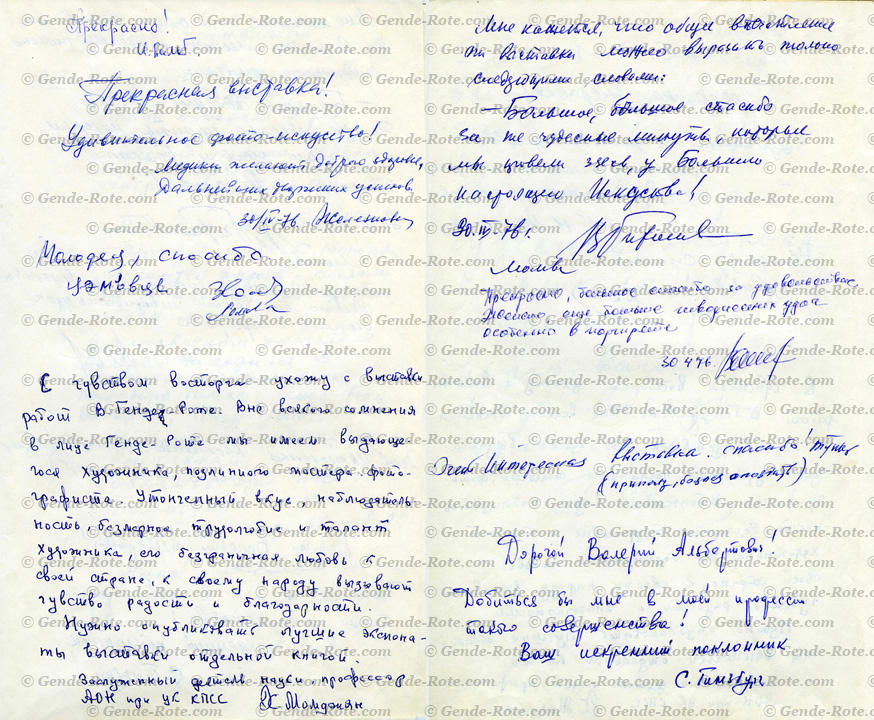 Прекрасно!
Прекрасная выставка!
Удивительное фото-искусство!
Медики желают доброго здоровья,
Дальнейших творческих успехов
30/IV-76
Молодец, спасибо
С чувством восторга ухожу с выставки
работ В. Генде-Роте. Вне всякого сомнения
в лице Генде-Роте мы имеем выдающе-
гося художника, подлинного мастера фото-
графиста. Утонченный вкус, наблюдатель-
ность, безмерное трудолюбие и талант
художника, его безграничная любовь к
своей стране, к своему народу вызывают
чувство радости и благодарности.
Нужно опубликовать лучшие экспона-
ты выставки отдельной книгой
Заслуженный деятель науки, профессор
АОН при ЦК КПСС
Мне кажется, что общее впечатление
от выставки можно выразить только
следующими словами:
— Большое, большое спасибо
за те чудесные минуты, которые
мы провели здесь, у Большого
настоящего Искусства!
30.IV-76 г.
Москва
Прекрасно, большое спасибо за удовольствие,
Желаю еще больше творческих удач
особенно в портрете
30 4 76
Очень интересная выставка. спасибо!
Дорогой Валерий Альбертович!
Добиться бы мне в моей профессии
такого совершенства!
Ваш искренний поклонник
С. Гинзбург
© Gende-Rote.com